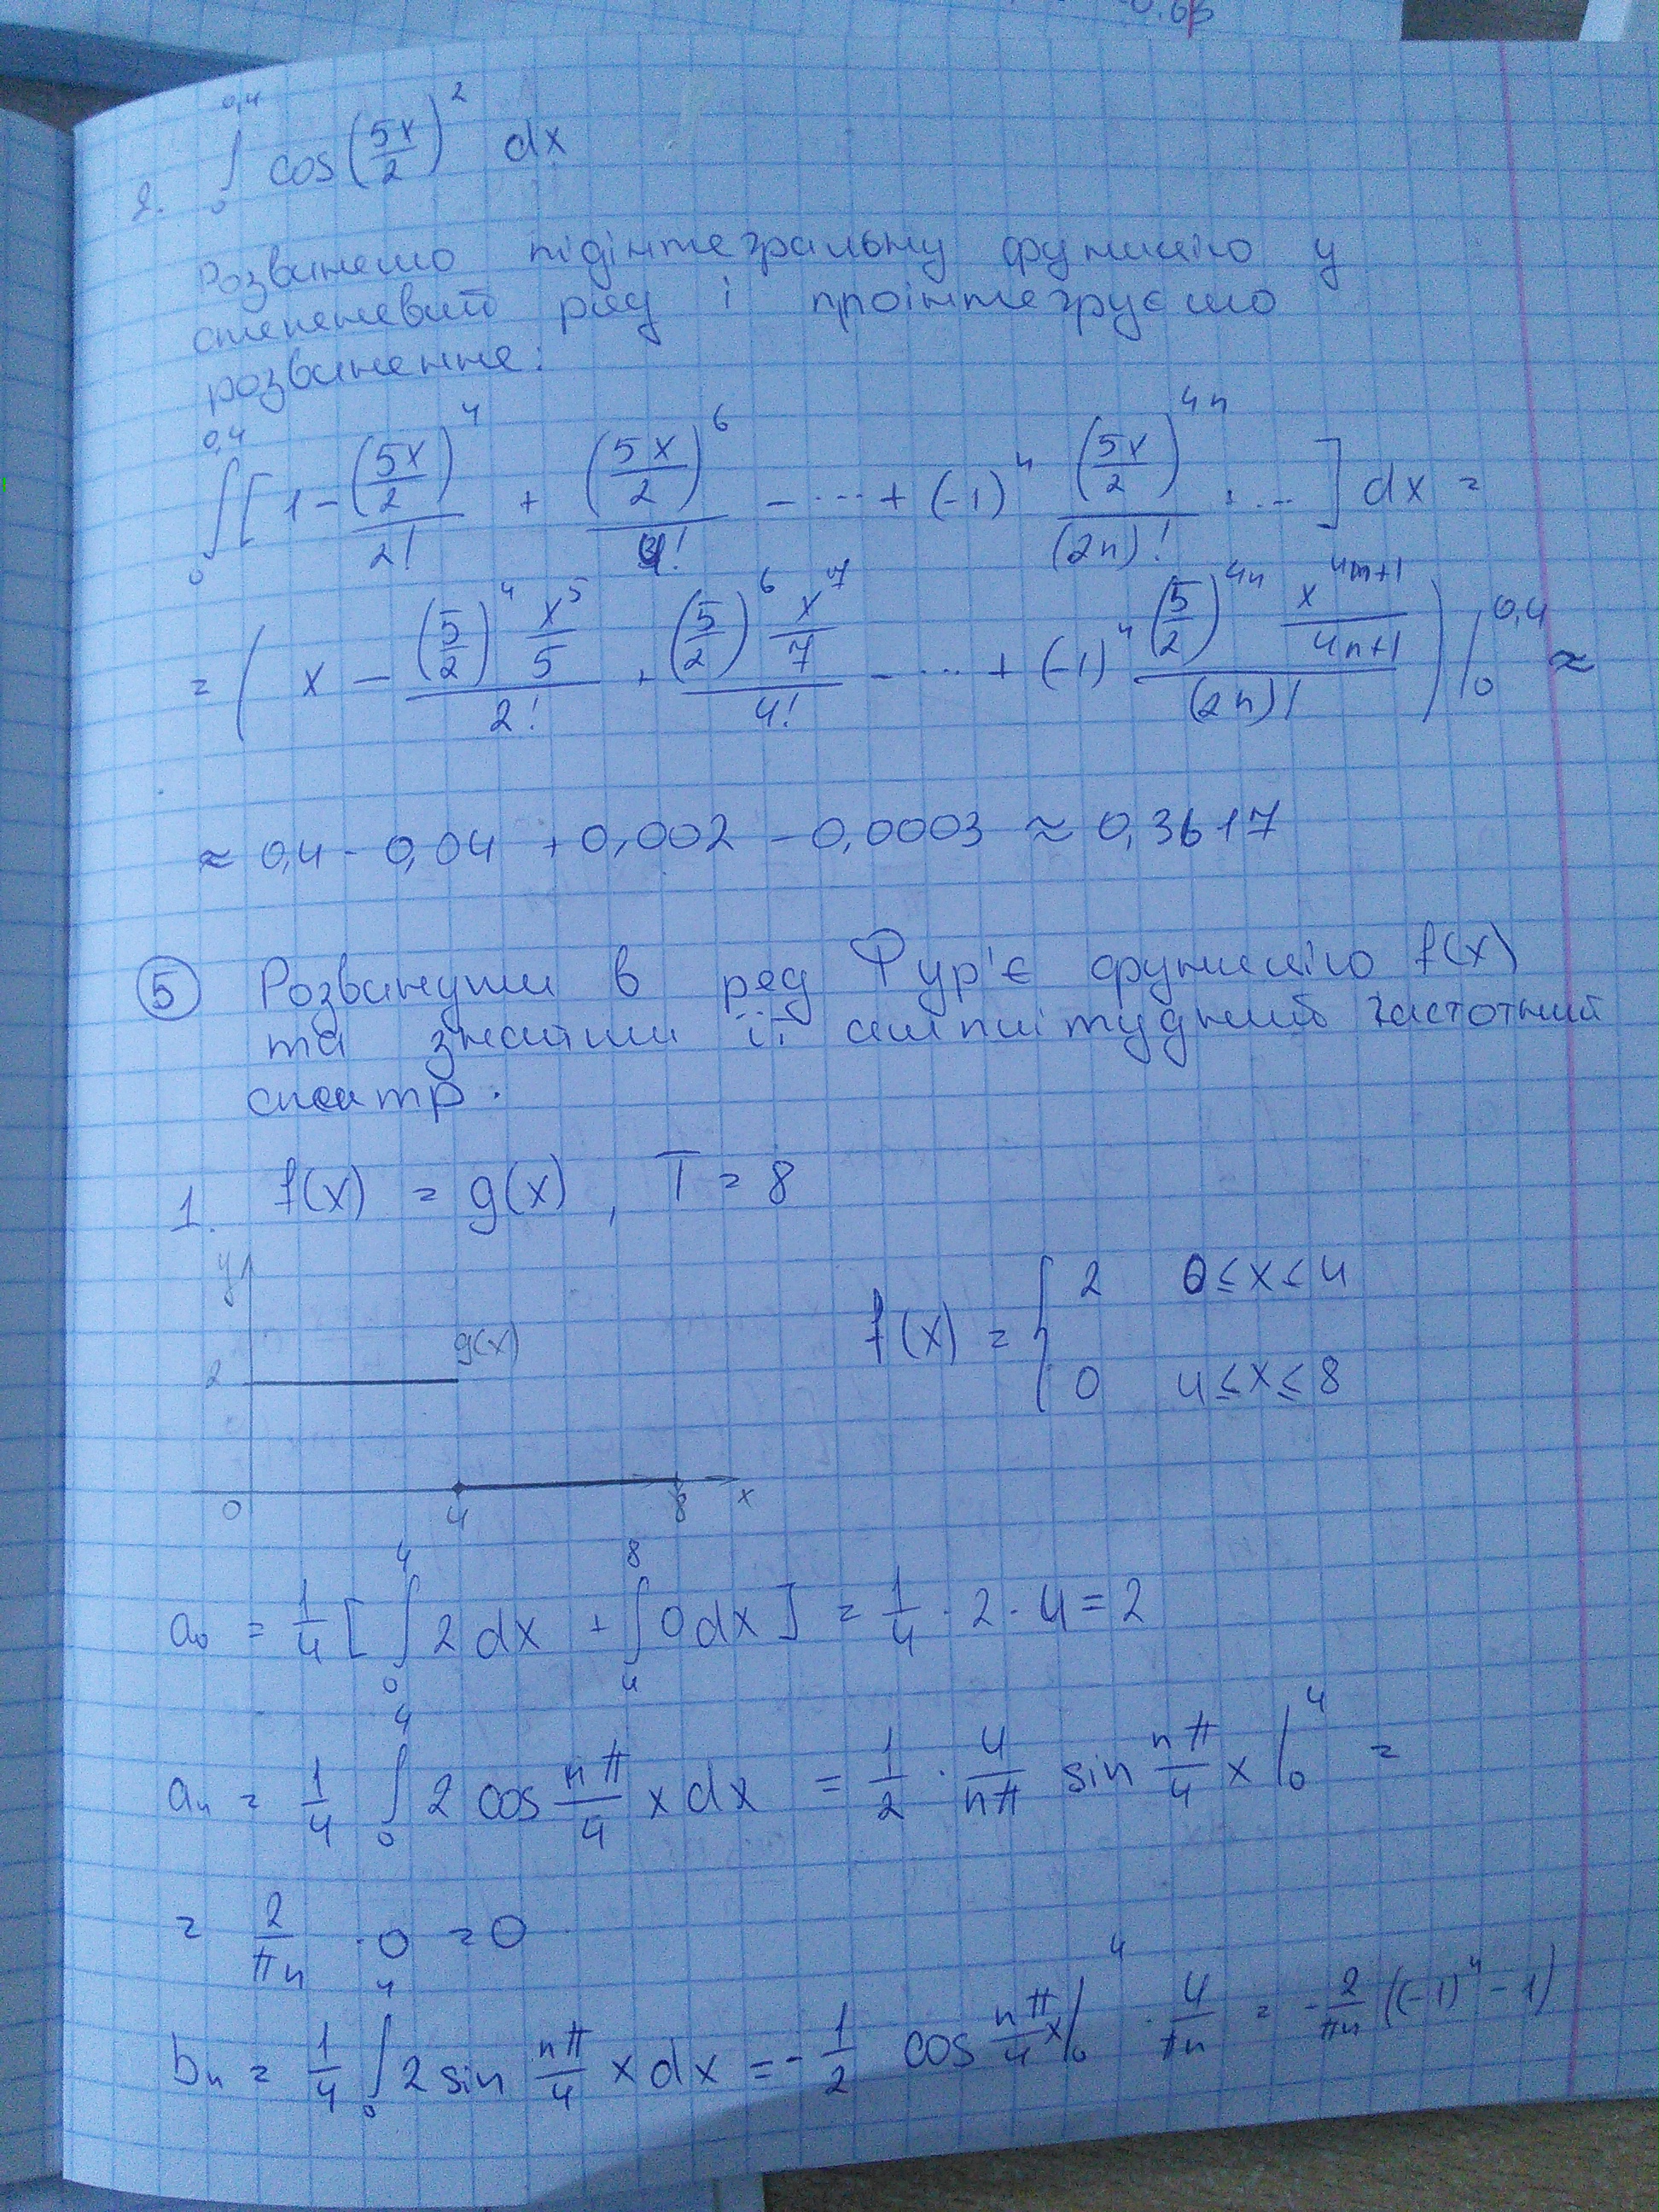 -0,63
2. ∫₀^0,4 cos(5x/2)² dx
Розвинемо підінтегральну функцію у
степеневий ряд і проінтегруємо
розвинення:
∫₀^0,4 [1 - (5x/2)⁴/2! + (5x/2)⁶/4! - ... + (-1)ⁿ (5x/2)⁴ⁿ/(2n)! ...] dx =
= (x - (5/2)⁴ x⁵/5 / 2! + (5/2)⁶ x⁷/7 / 4! - ... + (-1)ⁿ (5/2)⁴ⁿ x⁴ⁿ⁺¹/(4n+1) / (2n)!) |₀^0,4 ≈
≈ 0,4 - 0,04 + 0,002 - 0,0003 ≈ 0,3617
⑤ Розвинути в ряд Фур'є функцію f(x)
та знайти її амплітудний частотний
спектр.
1. f(x) = g(x), T = 8
y
g(x)
2
0 4 8 x
f(x) = { 2 0 ≤ x ≤ 4
0 4 ≤ x ≤ 8
a₀ = 1/4 [∫₀⁴ 2 dx + ∫₄⁸ 0 dx] = 1/4 · 2 · 4 = 2
aₙ = 1/4 ∫₀⁴ 2 cos nπ/4 x dx = 1/2 · 4/nπ sin nπ/4 x |₀⁴ =
= 2/πn · 0 = 0
bₙ = 1/4 ∫₀⁴ 2 sin nπ/4 x dx = - 1/2 cos nπ/4 x |₀⁴ · 4/πn = - 2/πn ((-1)ⁿ - 1)